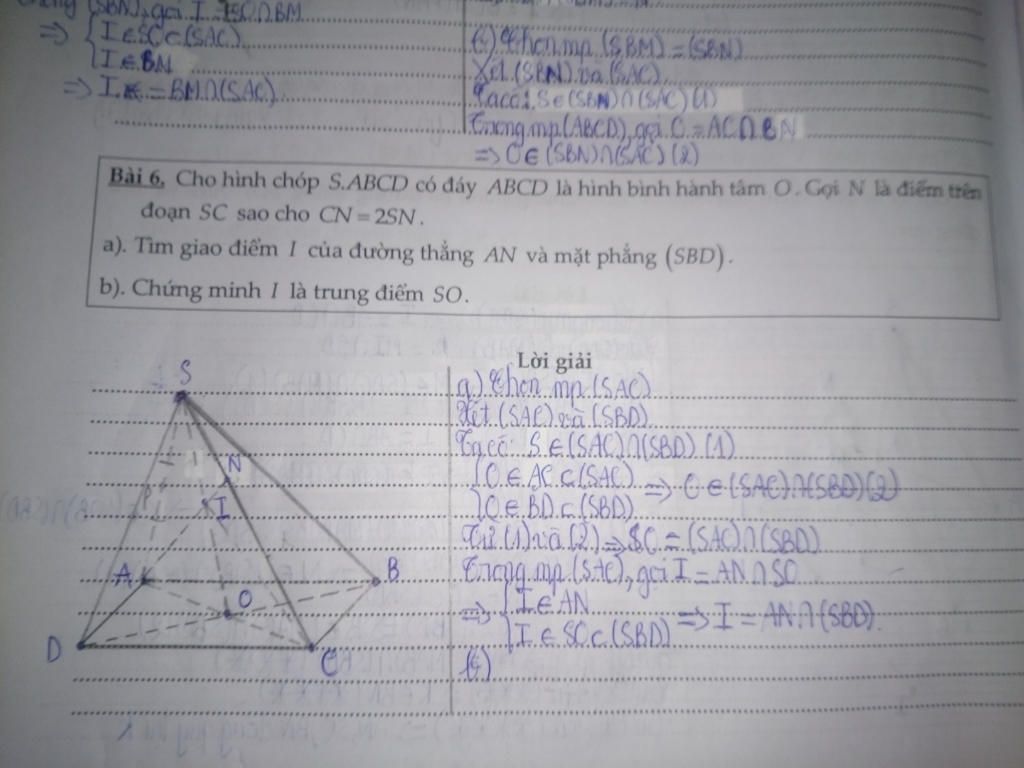 ⇒ { I ∈ SO ⊂ (SAC)
I ∈ BN
⇒ I = BM ∩ (SAC)
b) Chọn mp (SBM) ≡ (SBN)
Xét (SBN) và (SAC)
Ta có: S ∈ (SBN) ∩ (SAC) (1)
Trong mp(ABCD), gọi O = AC ∩ BN
⇒ O ∈ (SBN) ∩ (SAC) (2)
Bài 6. Cho hình chóp S.ABCD có đáy ABCD là hình bình hành tâm O. Gọi N là điểm trên
đoạn SC sao cho CN = 2SN.
a). Tìm giao điểm I của đường thẳng AN và mặt phẳng (SBD).
b). Chứng minh I là trung điểm SO.
Lời giải
S
N
I
A
B
O
D
C
a) Chọn mp (SAC)
Xét (SAC) và (SBD)
Ta có: S ∈ (SAC) ∩ (SBD) (1)
{ O ∈ AC ⊂ (SAC) ⇒ O ∈ (SAC) ∩ (SBD) (2)
O ∈ BD ⊂ (SBD)
Từ (1) và (2) ⇒ SO = (SAC) ∩ (SBD)
Trong mp (SAC), gọi I = AN ∩ SO
⇒ { I ∈ AN
I ∈ SO ⊂ (SBD) ⇒ I = AN ∩ (SBD).
b)